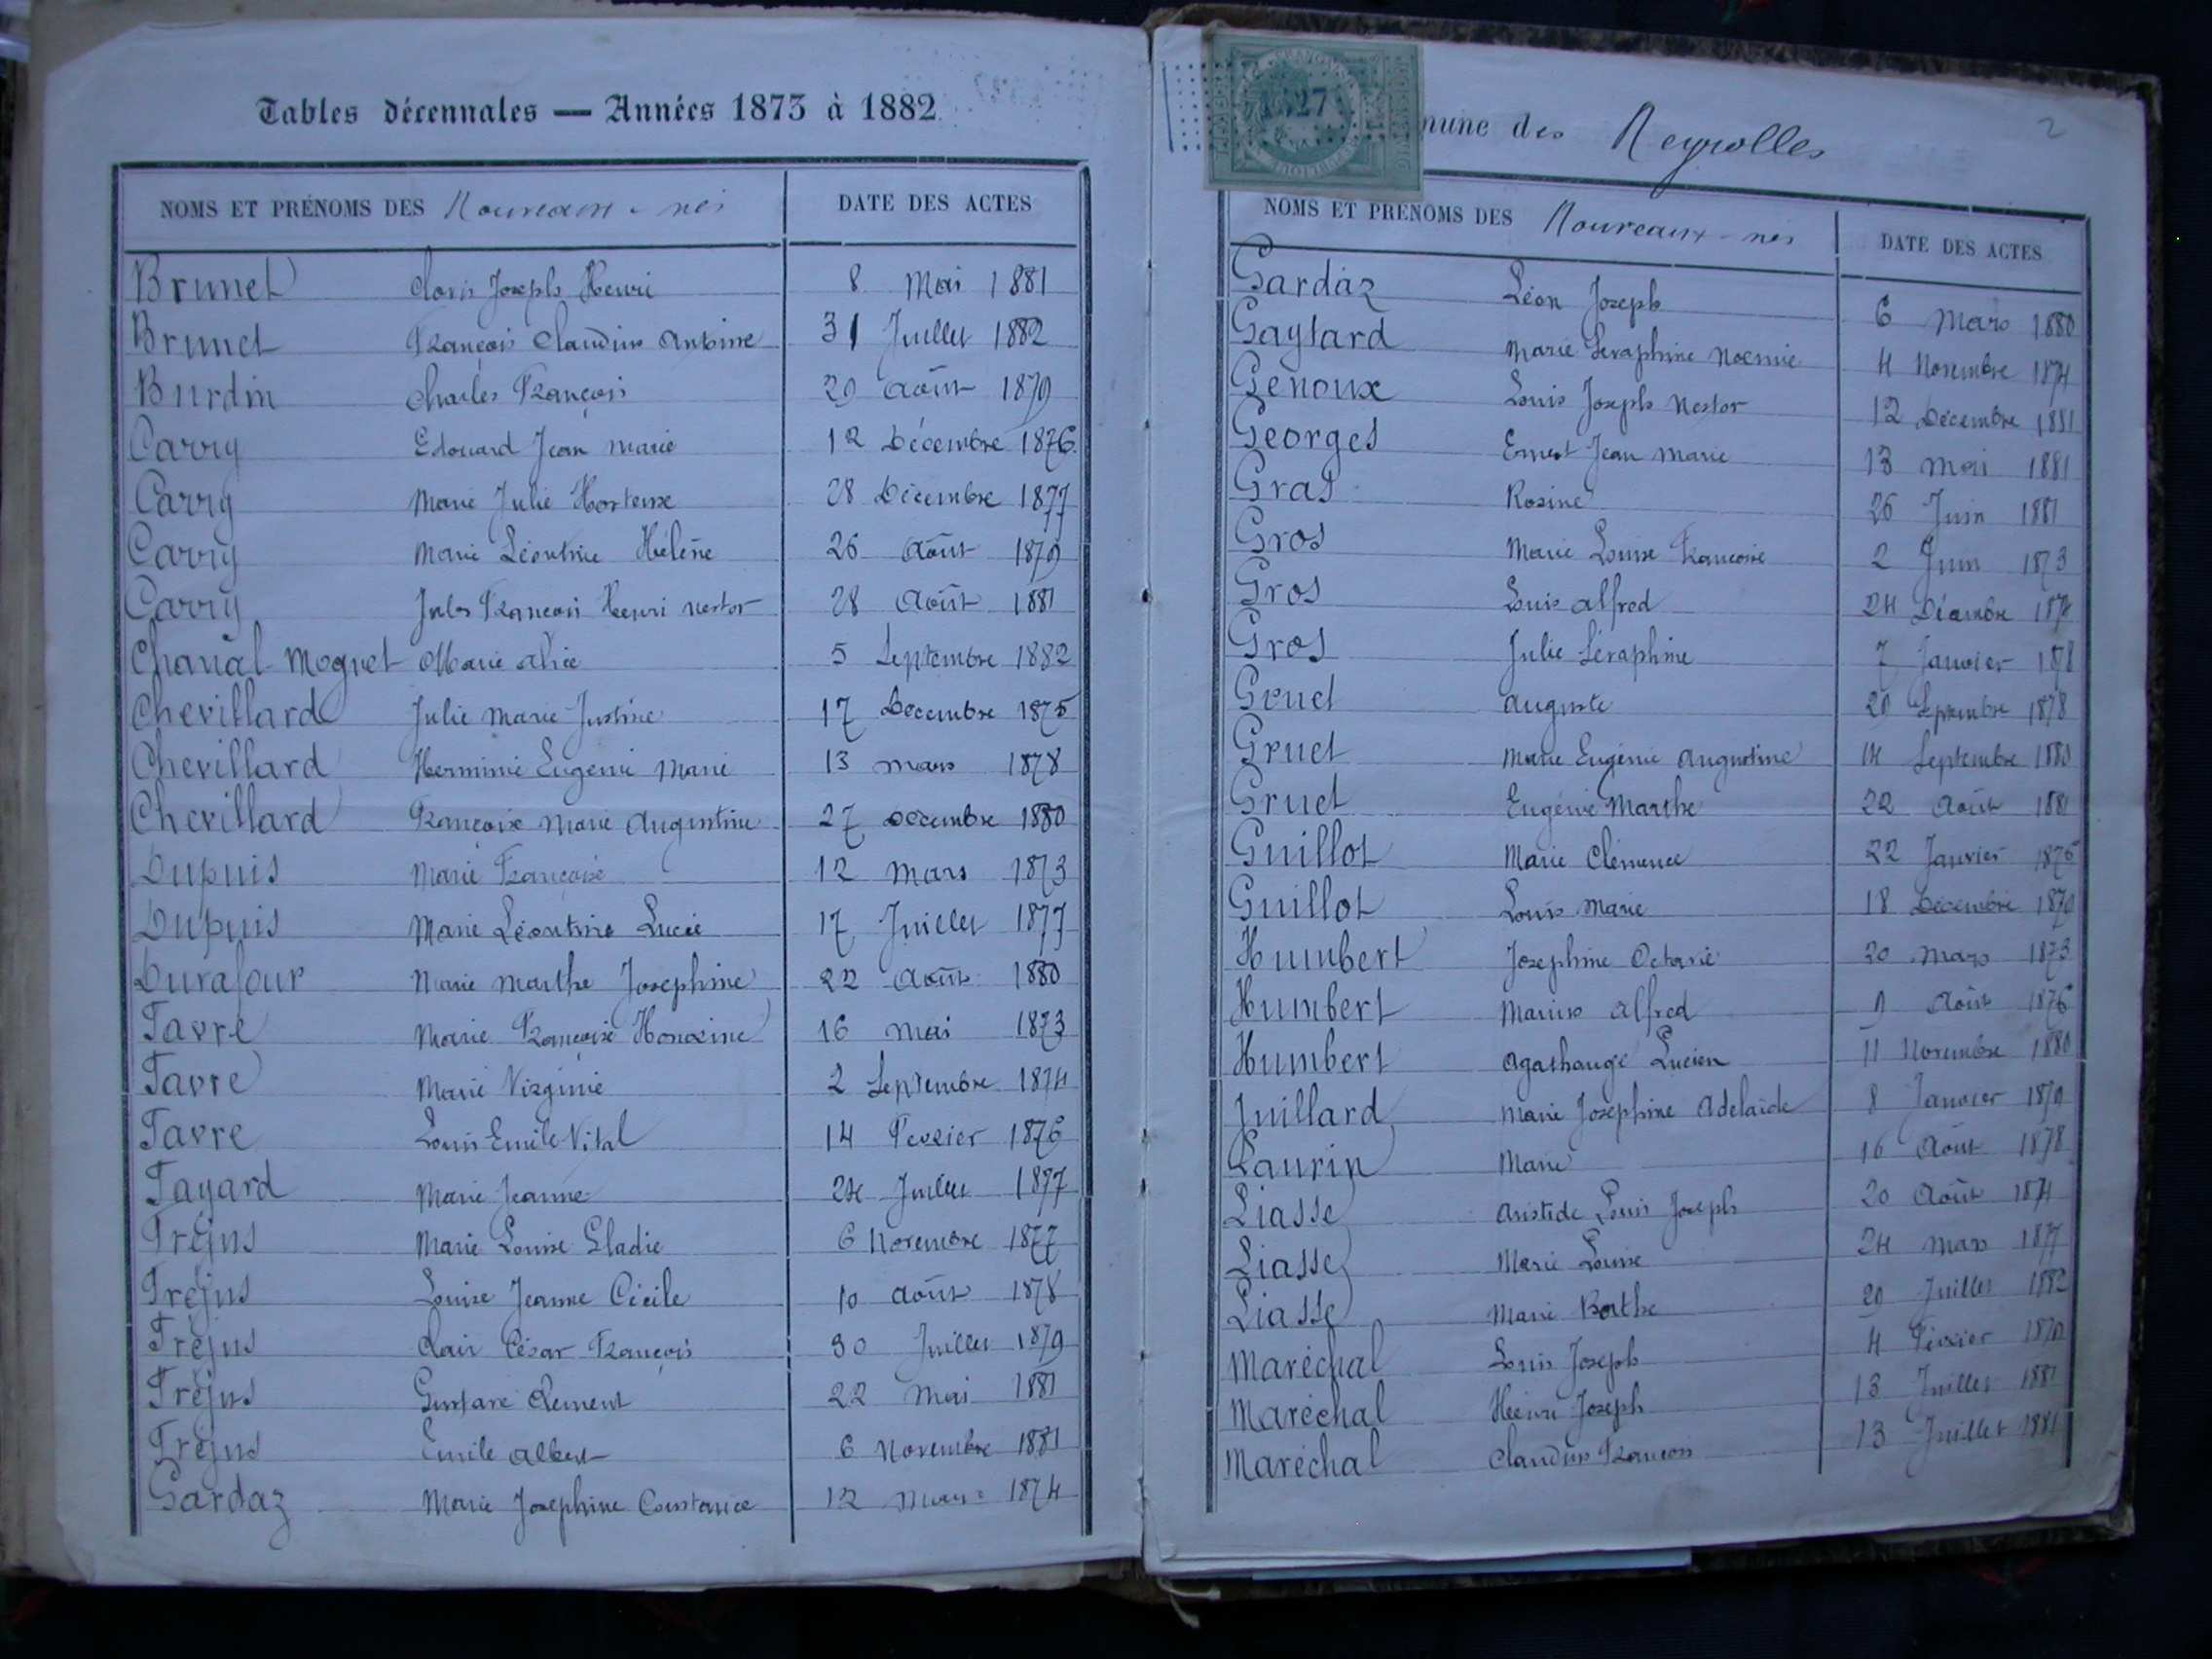 Tables décennales — Années 1873 à 1882
NOMS ET PRÉNOMS DES Nouveaux-nés DATE DES ACTES
Brunet Clovis Joseph Henri 8 Mai 1881
Brunet François Claudius Antoine 31 Juillet 1882
Burdin Charles François 29 Août 1879
Carry Edouard Jean Marie 12 Décembre 1876
Carry Marie Julie Hortense 28 Décembre 1877
Carry Marie Léontine Hélène 26 Août 1879
Carry Jules François Henri Nestor 28 Août 1881
Chanal-Mognet Marie Alice 5 Septembre 1882
Chevillard Julie Marie Justine 17 Décembre 1875
Chevillard Herminie Eugénie Marie 13 Mars 1878
Chevillard Françoise Marie Augustine 27 Décembre 1880
Dupuis Marie Françoise 12 Mars 1873
Dupuis Marie Léontine Lucie 17 Juillet 1877
Durafour Marie Marthe Josephine 22 Août 1880
Favre Marie Françoise Honorine 16 Mai 1873
Favre Marie Virginie 2 Septembre 1874
Favre Louis Emile Vital 14 Février 1876
Fayard Marie Jeanne 24 Juillet 1877
Fréjus Marie Louise Eladie 6 Novembre 1877
Fréjus Louise Jeanne Cécile 10 Août 1878
Fréjus Clair César François 30 Juillet 1879
Fréjus Gustave Clément 22 Mai 1881
Fréjus Emile Albert 6 Novembre 1881
Gardaz Marie Josephine Constance 12 Mars 1874
mune des Neyrolles 2
NOMS ET PRÉNOMS DES Nouveaux-nés DATE DES ACTES
Gardaz Léon Joseph 6 Mars 1880
Gaylard Marie Séraphine Noémie 4 Novembre 1874
Genoux Louis Joseph Nestor 12 Décembre 1881
Georges Ernest Jean Marie 13 Mai 1881
Gras Rosine 26 Juin 1881
Gros Marie Louise Françoise 2 Juin 1873
Gros Louis Alfred 24 Décembre
Gros Julie Séraphine 7 Janvier 1878
Gruet Auguste Septembre 1878
Gruet Marie Eugénie Augustine 14 Septembre 1880
Gruet Eugénie Marthe 22 Août 1881
Guillot Marie Clémence 22 Janvier 1876
Guillot Louis Marie 18 Décembre 1879
Humbert Josephine Octavie 20 Mars 1873
Humbert Marius Alfred 9 Août 1876
Humbert Agathange Lucien 11 Novembre 1880
Juillard Marie Josephine Adelaïde 8 Janvier 1879
Laurin Marie 16 Août 1878
Liasse Aristide Louis Joseph 20 Août 1874
Liasse Marie Louise 24 Mars 1877
Liasse Marie Berthe 20 Juillet 1882
Maréchal Louis Joseph 4 Février 1879
Maréchal Henri Joseph 13 Juillet 1881
Maréchal Claudius François 13 Juillet 1881